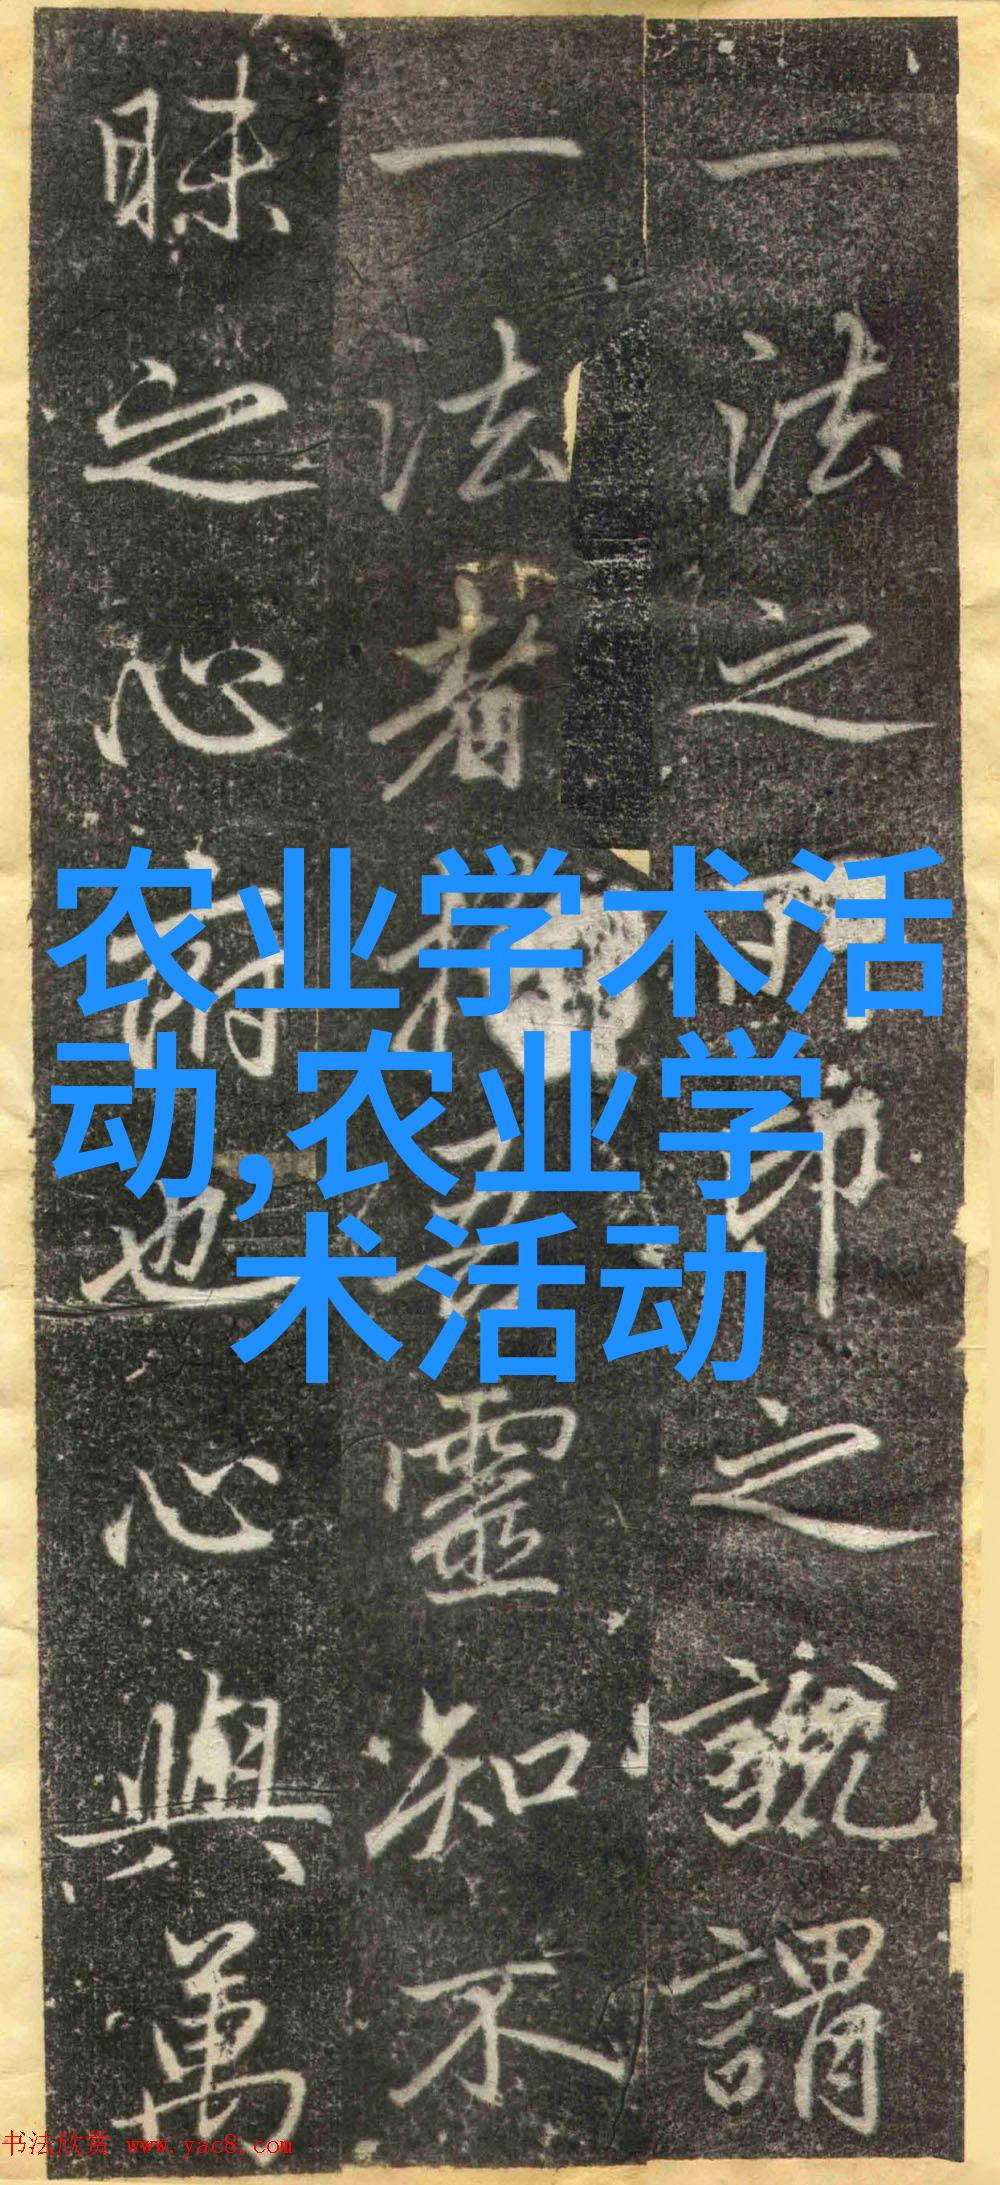 一法之
之號謂
一法者
靈知不
昧之心
也心與萬
农业学术活
动,农业学
术活动
书法欣赏 www.yac8.com